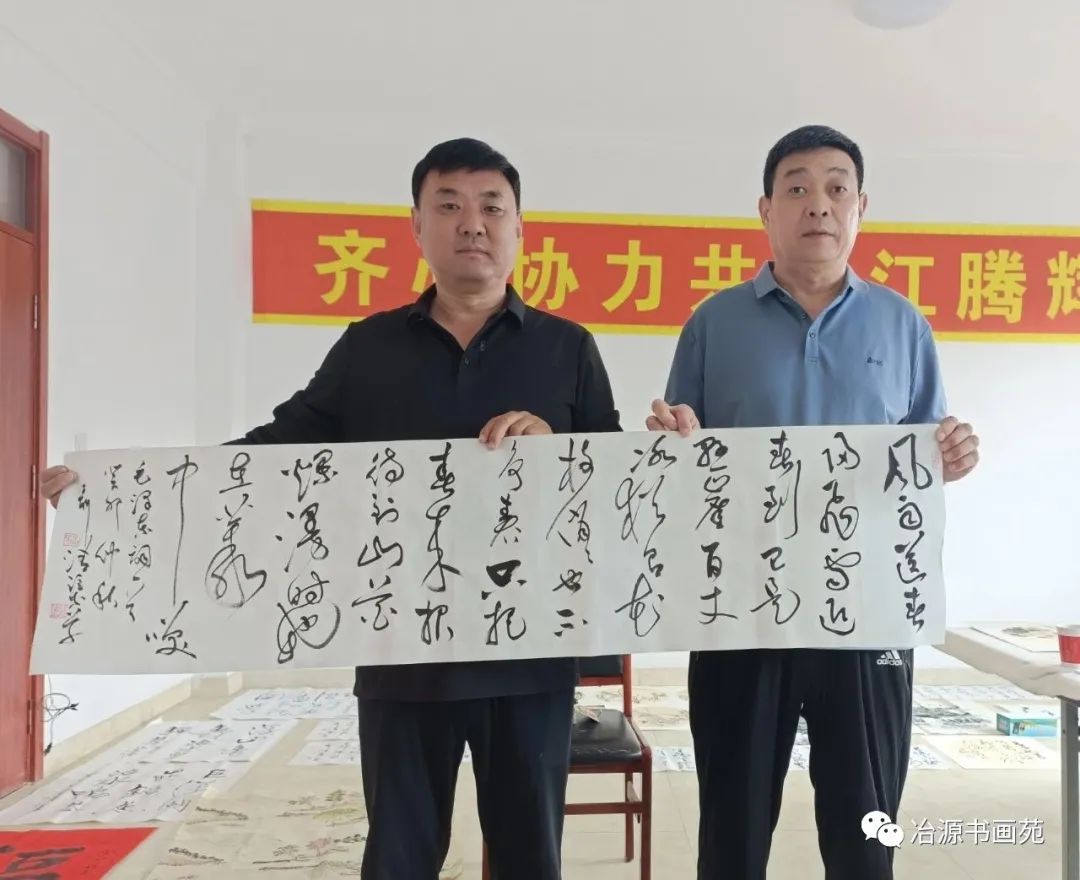 齐心协力共
江腾辉
风雨送春
归飞雪迎
春到已是
悬崖百丈
冰犹有花
枝俏々也不
争春只把
春来报
待到山花
烂漫时她
在丛
中笑
毛泽东词一首
癸卯仲秋
adidas
冶源书画苑